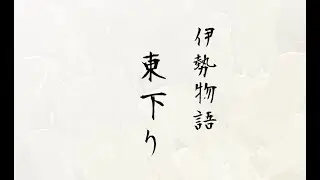 伊勢物語
東下り